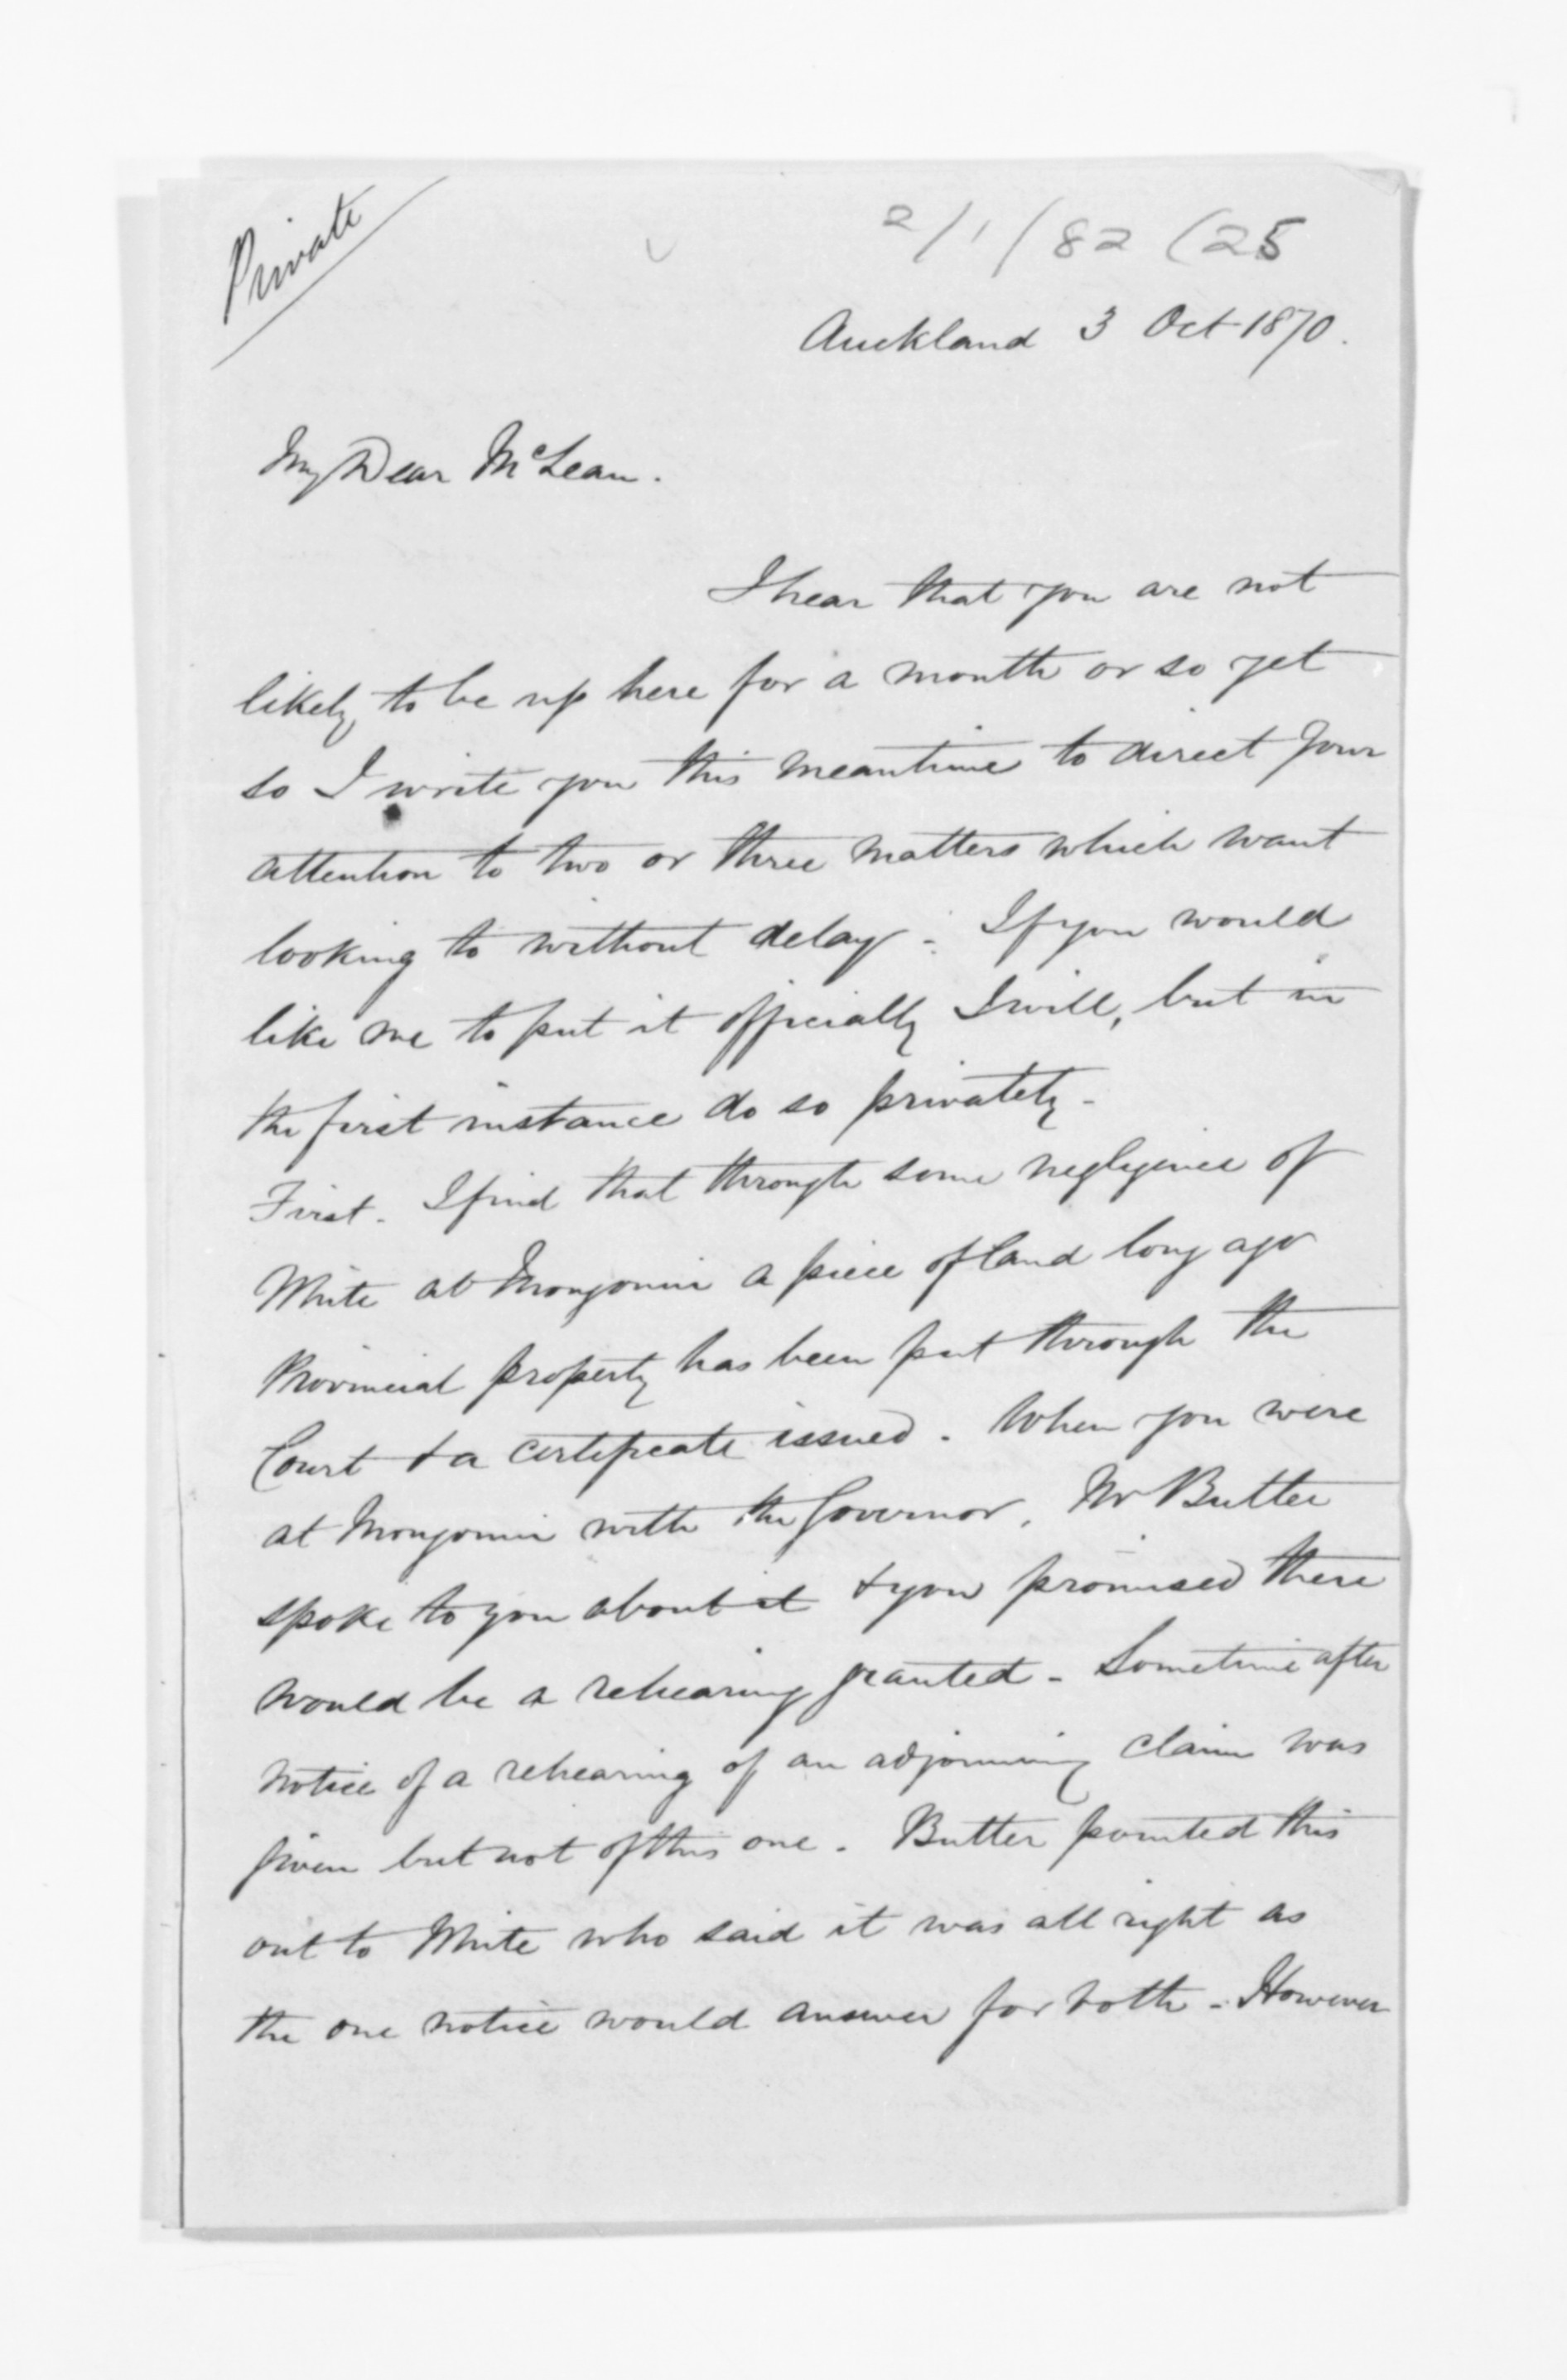 Private
2/1/82 (25
Auckland 3 Oct 1870.
My Dear McLean.
I hear that you are not
likely to be up here for a month or so yet
so I write you this meantime to direct your
attention to two or three matters which want
looking to without delay - If you would
like me to put it officially I will, but in
the first instance do so privately -
First - I find that through some negligence of
White at Mongonui a piece of land long ago
Provincial property has been put through the
Court & a certificate issued. When you were
at Mongonui with the Governor, Mr Butler
spoke to you about it & you promised there
would be a rehearing granted - Sometime after
notice of a rehearing of an adjoining claim was
given but not of this one. Butler pointed this
out to White who said it was all right as
the one notice would answer for both - However